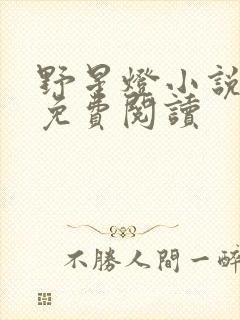 野星燈小說
免費閱讀
不勝人間一醉